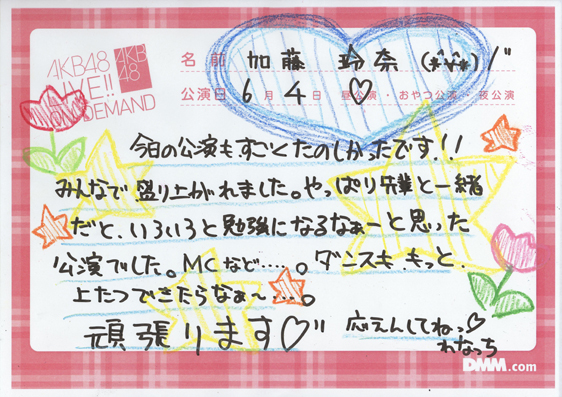 AKB48
LIVE!!
ON DEMAND
AKB
48
名前 加藤 玲奈 (*^v^*)/"
公演日 6月4日 ♡ 昼公演・おやつ公演・夜公演
今日の公演もすごくたのしかったです!!
みんなで盛り上がれました。やっぱり先輩と一緒
だと、いろいろと勉強になるなぁーと思った
公演でした。MCなど・・・・。ダンスも、もっと、
上たつできたらなぁ〜・・・。
頑張ります♡"
応えんしてねっ♡
れなっち
DMM.com